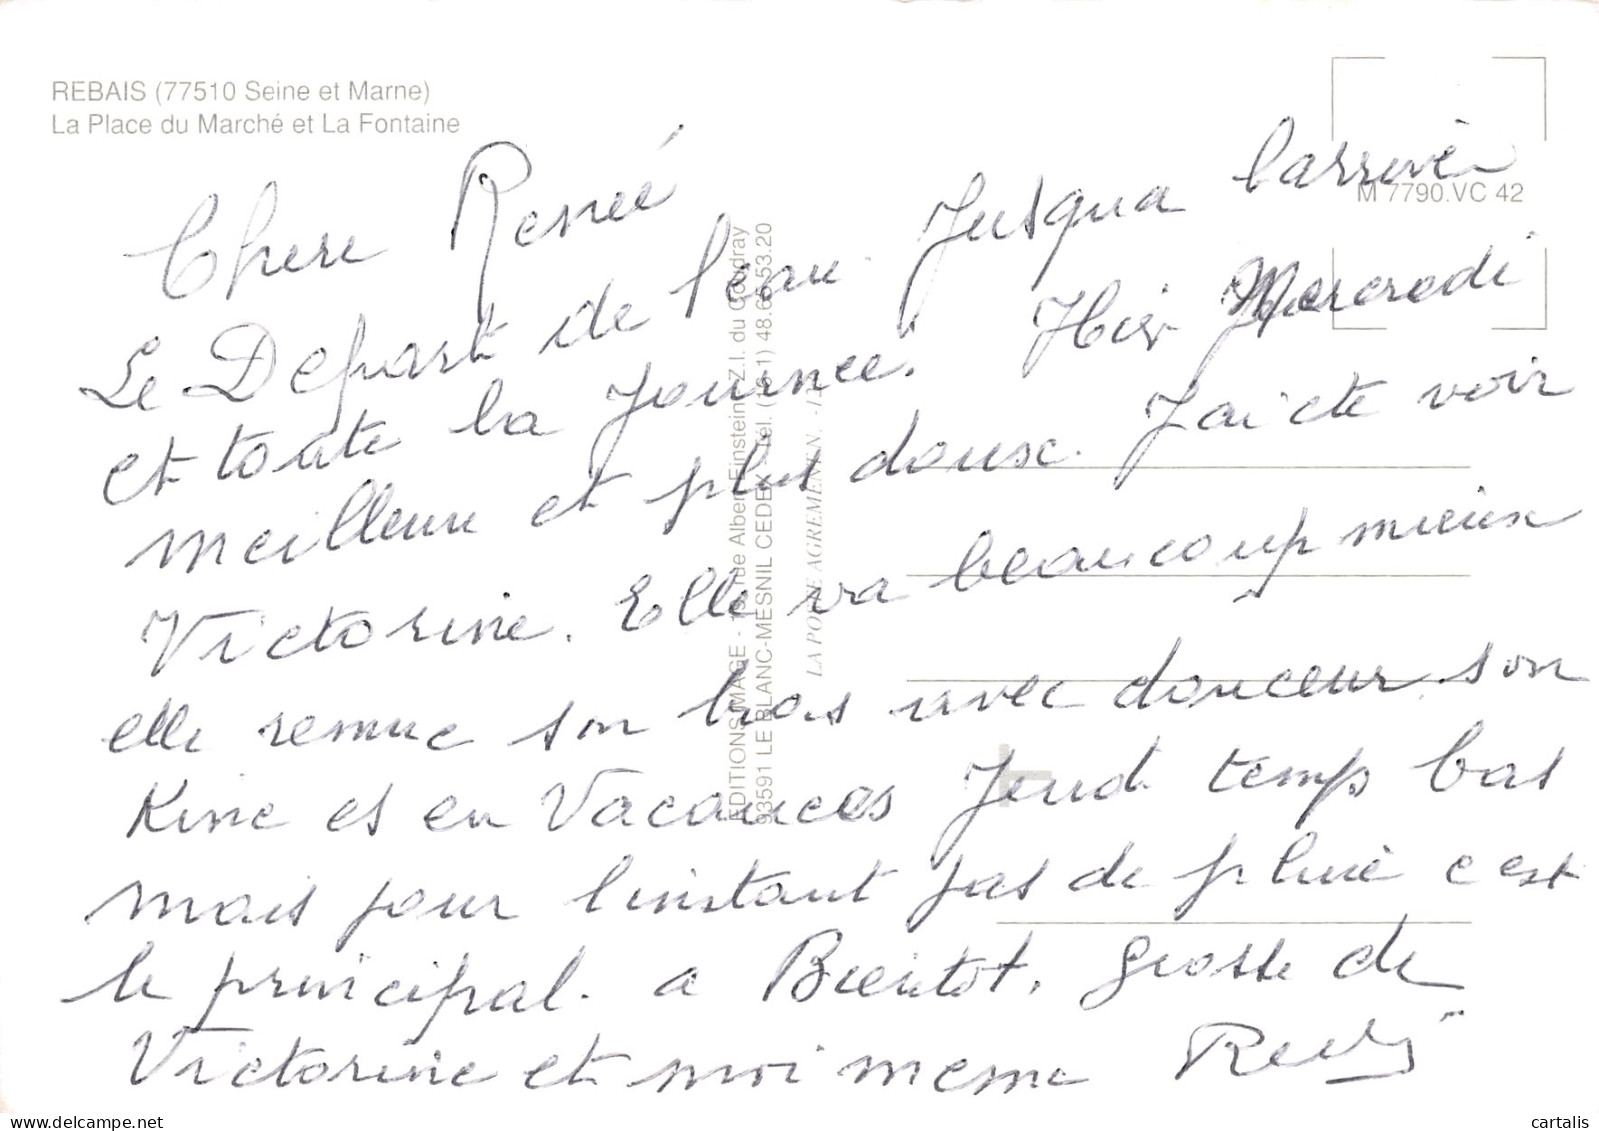 REBAIS (77510 Seine et Marne)
La Place du Marché et La Fontaine
M 7790.VC 42
Chere Renée
Le Depart de l'eau Jusqua larrivée
et toute la Journee. Hier Mercredi
meilleure et plus douse. J'ai ete voir
Victorine. Elle va beaucoup mieux
elle remue son bras avec douceur son
Kine es en Vacances Jeudi temps bas
mais pour linstant pas de pluie c est
le principal. a Bientot. Grosse de
Victorine et moi meme
EDITIONS IMAGE - rue Albert Einstein - Z.I. du Coudray
93591 LE BLANC-MESNIL CEDEX - Tél. (16-1) 48.65.53.20
cartalis